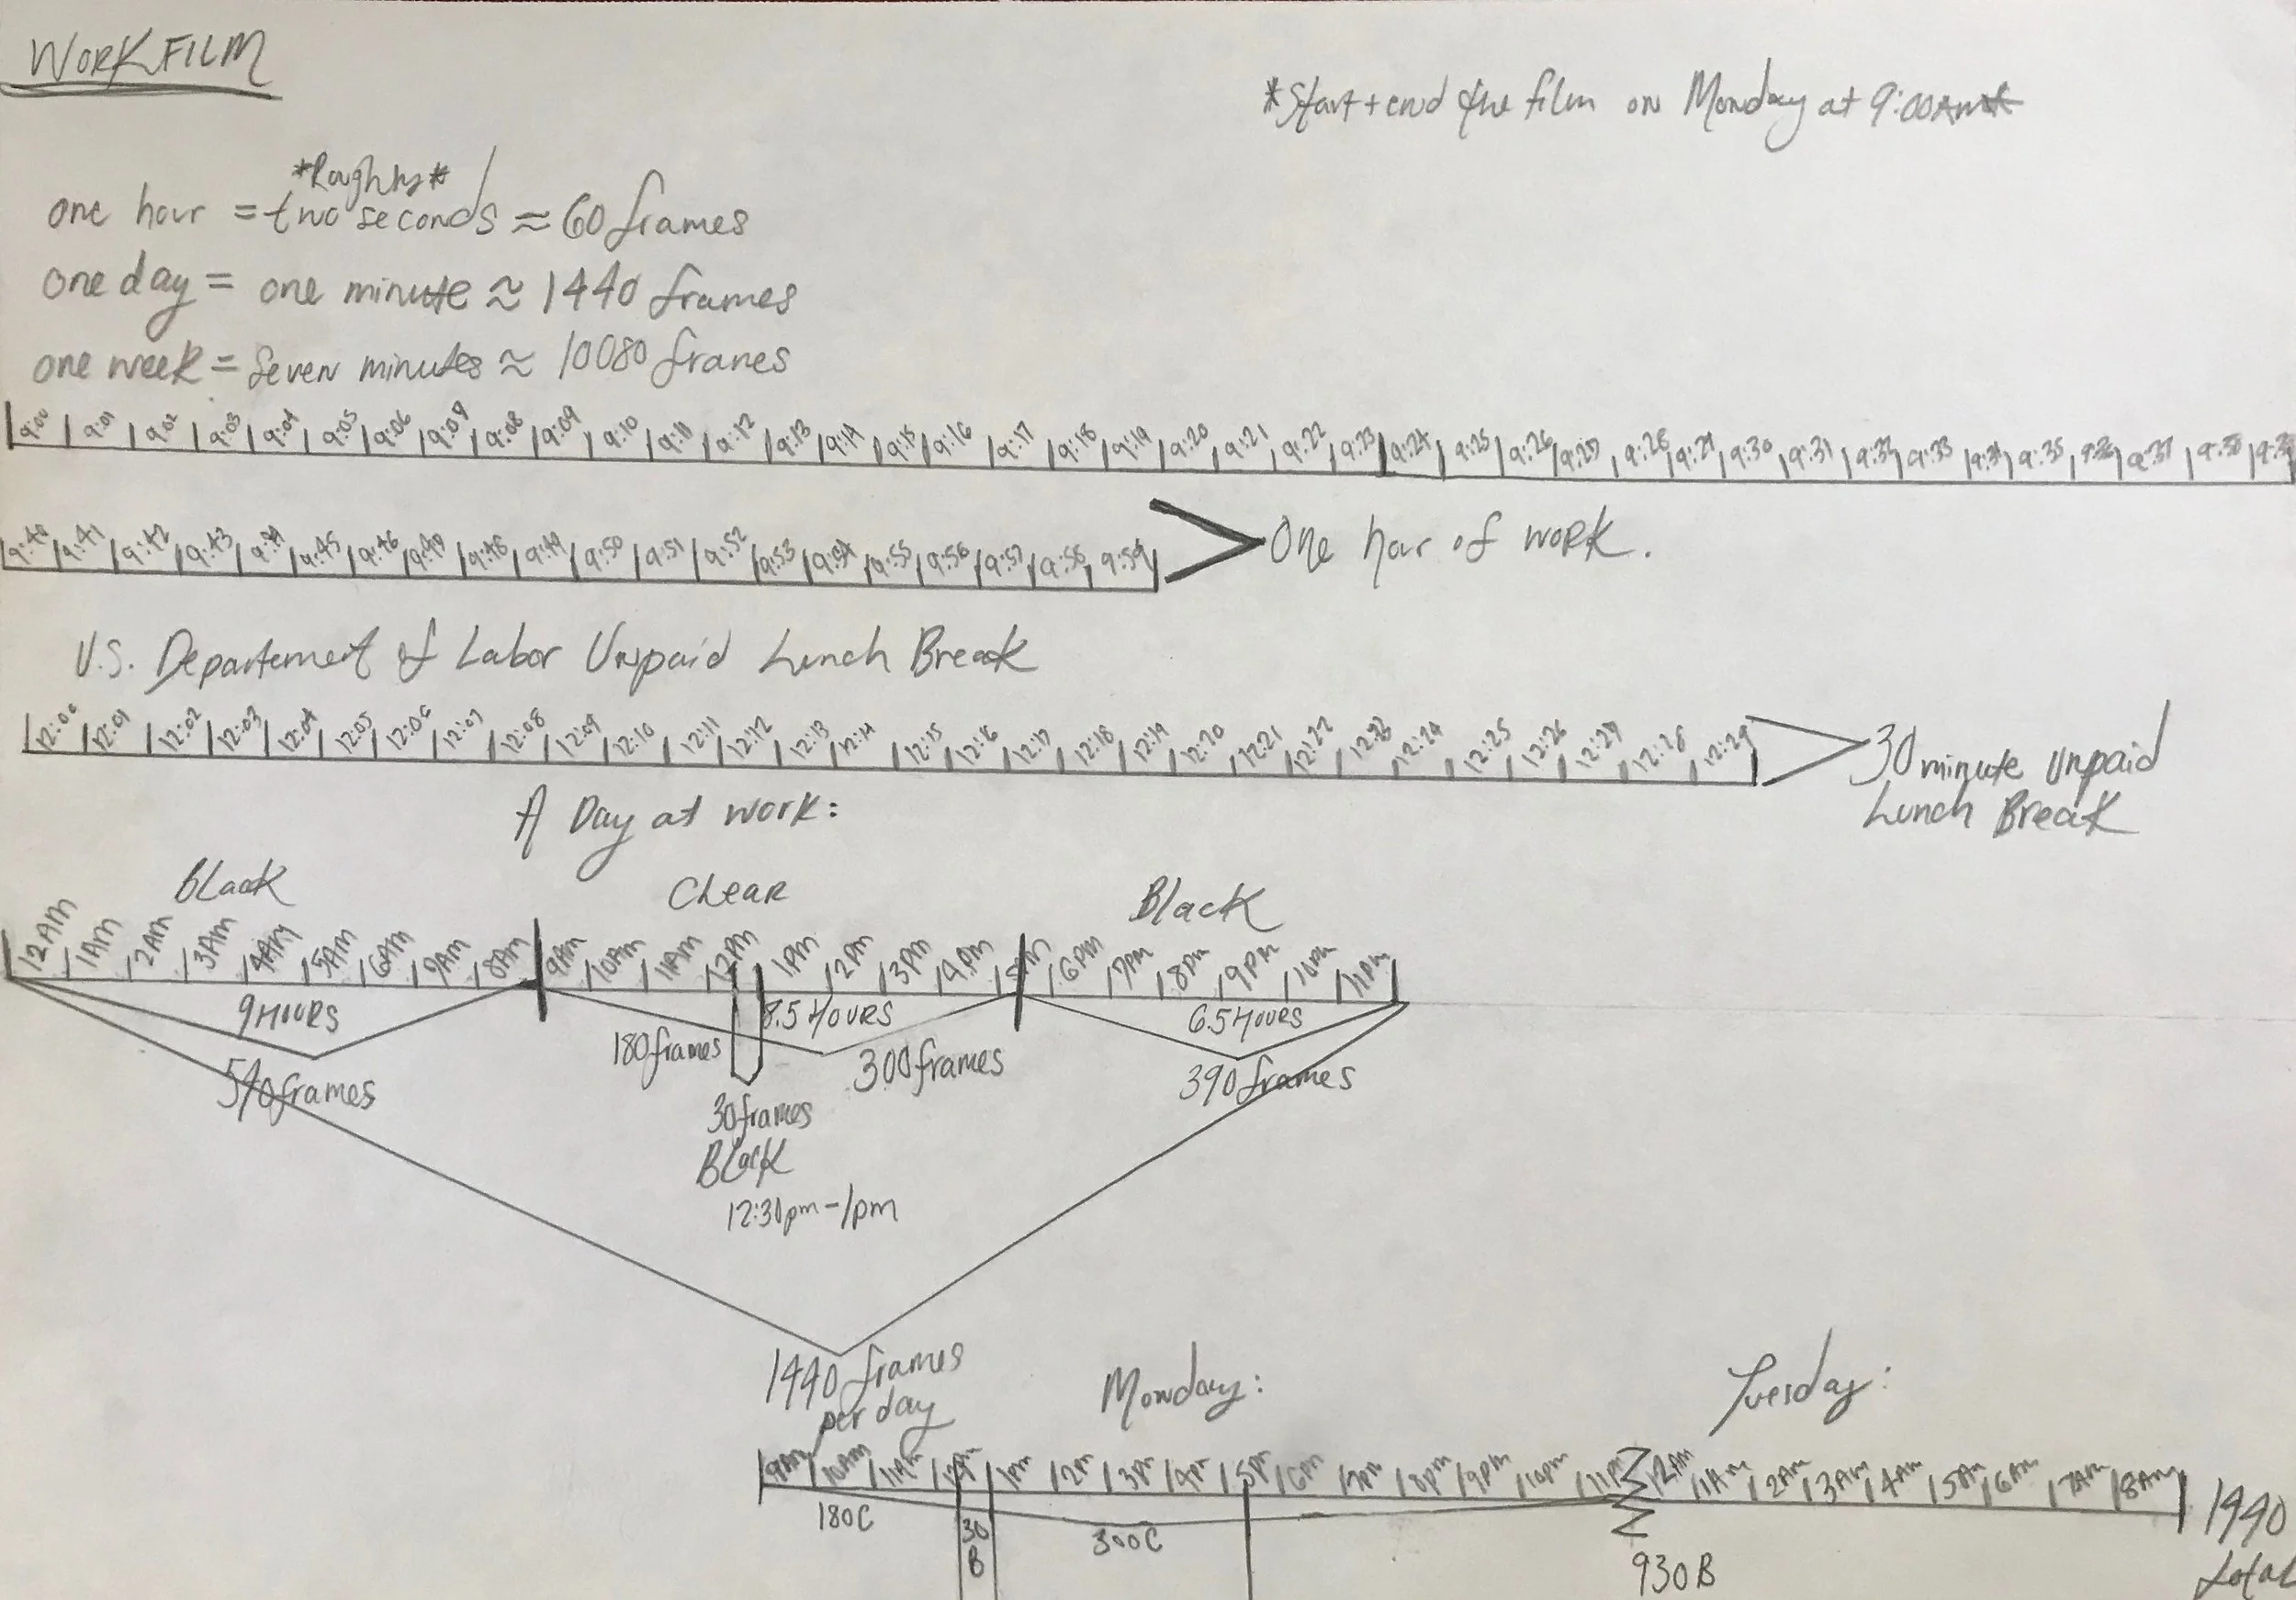 WORK FILM
*Start + end the film on Monday at 9:00AM*
*Roughly*
one hour = two seconds ≈ 60 frames
one day = one minute ≈ 1440 frames
one week = Seven minutes ≈ 10080 franes
9:00 9:01 9:02 9:03 9:04 9:05 9:06 9:09 9:08 9:09 9:10 9:11 9:12 9:13 9:14 9:15 9:16 9:17 9:18 9:19 9:20 9:21 9:22 9:23 9:24 9:25 9:26 9:27 9:28 9:29 9:30 9:31 9:32 9:33 9:34 9:35 9:36 9:37 9:38
9:40 9:41 9:42 9:43 9:44 9:45 9:46 9:49 9:48 9:49 9:50 9:51 9:52 9:53 9:54 9:55 9:56 9:57 9:58 9:59
One hour of work.
U.S. Departement of Labor Unpaid Lunch Break
12:00 12:01 12:02 12:03 12:04 12:05 12:06 12:07 12:08 12:09 12:10 12:11 12:12 12:13 12:14 12:15 12:16 12:17 12:18 12:19 12:20 12:21 12:22 12:23 12:24 12:25 12:26 12:27 12:28 12:29
30 minute Unpaid
Lunch Break
A Day at work:
Black Clear Black
12AM 1AM 2AM 3AM 4AM 5AM 6AM 9AM 8AM 9AM 10AM 11AM 12PM 1PM 2PM 3PM 4PM 5PM 6PM 7PM 8PM 9PM 10PM 11PM
9 HOURS 8.5 HOURS 6.5 HOURS
540 frames 180 frames 300 frames 390 frames
30 frames
Black
12:30pm-1pm
1440 frames
per day
Monday: Tuesday:
9AM 10AM 11AM 12pm 1pm 2pm 3pm 4pm 5pm 6pm 7pm 8pm 9pm 10pm 11pm 12AM 1AM 2AM 3AM 4AM 5AM 6AM 7AM 8AM
180C 30 B 300C 930 B
1440
total